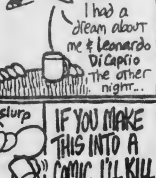 I had a
dream about
me & Leonardo
DiCaprio
the other
night...
slurp
IF YOU MAKE
THIS INTO A
COMIC, I'LL KILL